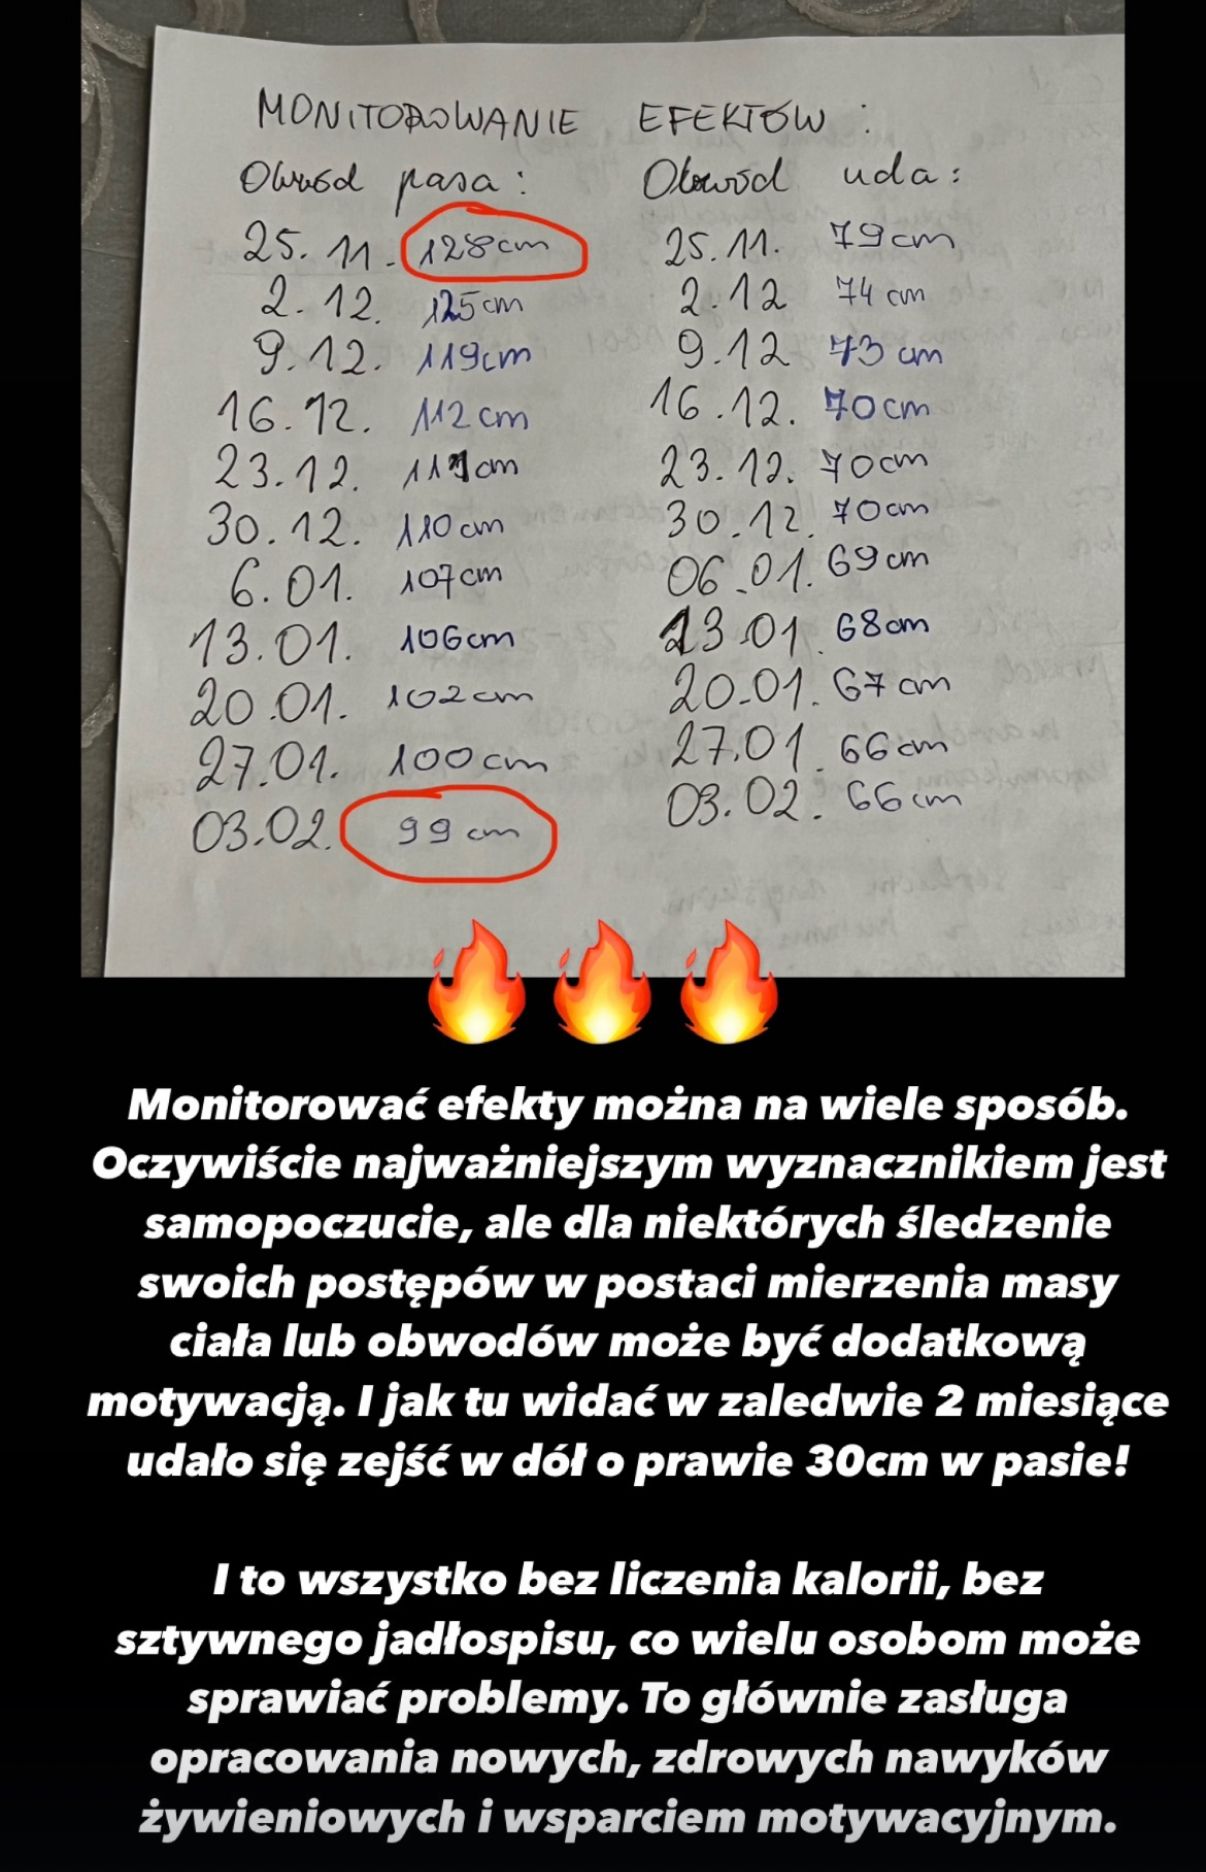 MONITOROWANIE EFEKTÓW :
Obwód pasa : Obwód uda :
25. 11. 128cm 25. 11. 79cm
2. 12. 125cm 2. 12 74 cm
9. 12. 119cm 9. 12 73 cm
16. 12. 112 cm 16. 12. 70cm
23. 12. 111cm 23. 12. 70cm
30. 12. 110cm 30. 12. 70cm
6. 01. 107cm 06. 01. 69cm
13. 01. 106cm 13.01. 68cm
20.01. 102cm 20.01. 67 cm
27.01. 100cm 27.01. 66cm
03.02. 99 cm 03. 02. 66cm
🔥🔥🔥
Monitorować efekty można na wiele sposób.
Oczywiście najważniejszym wyznacznikiem jest
samopoczucie, ale dla niektórych śledzenie
swoich postępów w postaci mierzenia masy
ciała lub obwodów może być dodatkową
motywacją. I jak tu widać w zaledwie 2 miesiące
udało się zejść w dół o prawie 30cm w pasie!
I to wszystko bez liczenia kalorii, bez
sztywnego jadłospisu, co wielu osobom może
sprawiać problemy. To głównie zasługa
opracowania nowych, zdrowych nawyków
żywieniowych i wsparciem motywacyjnym.